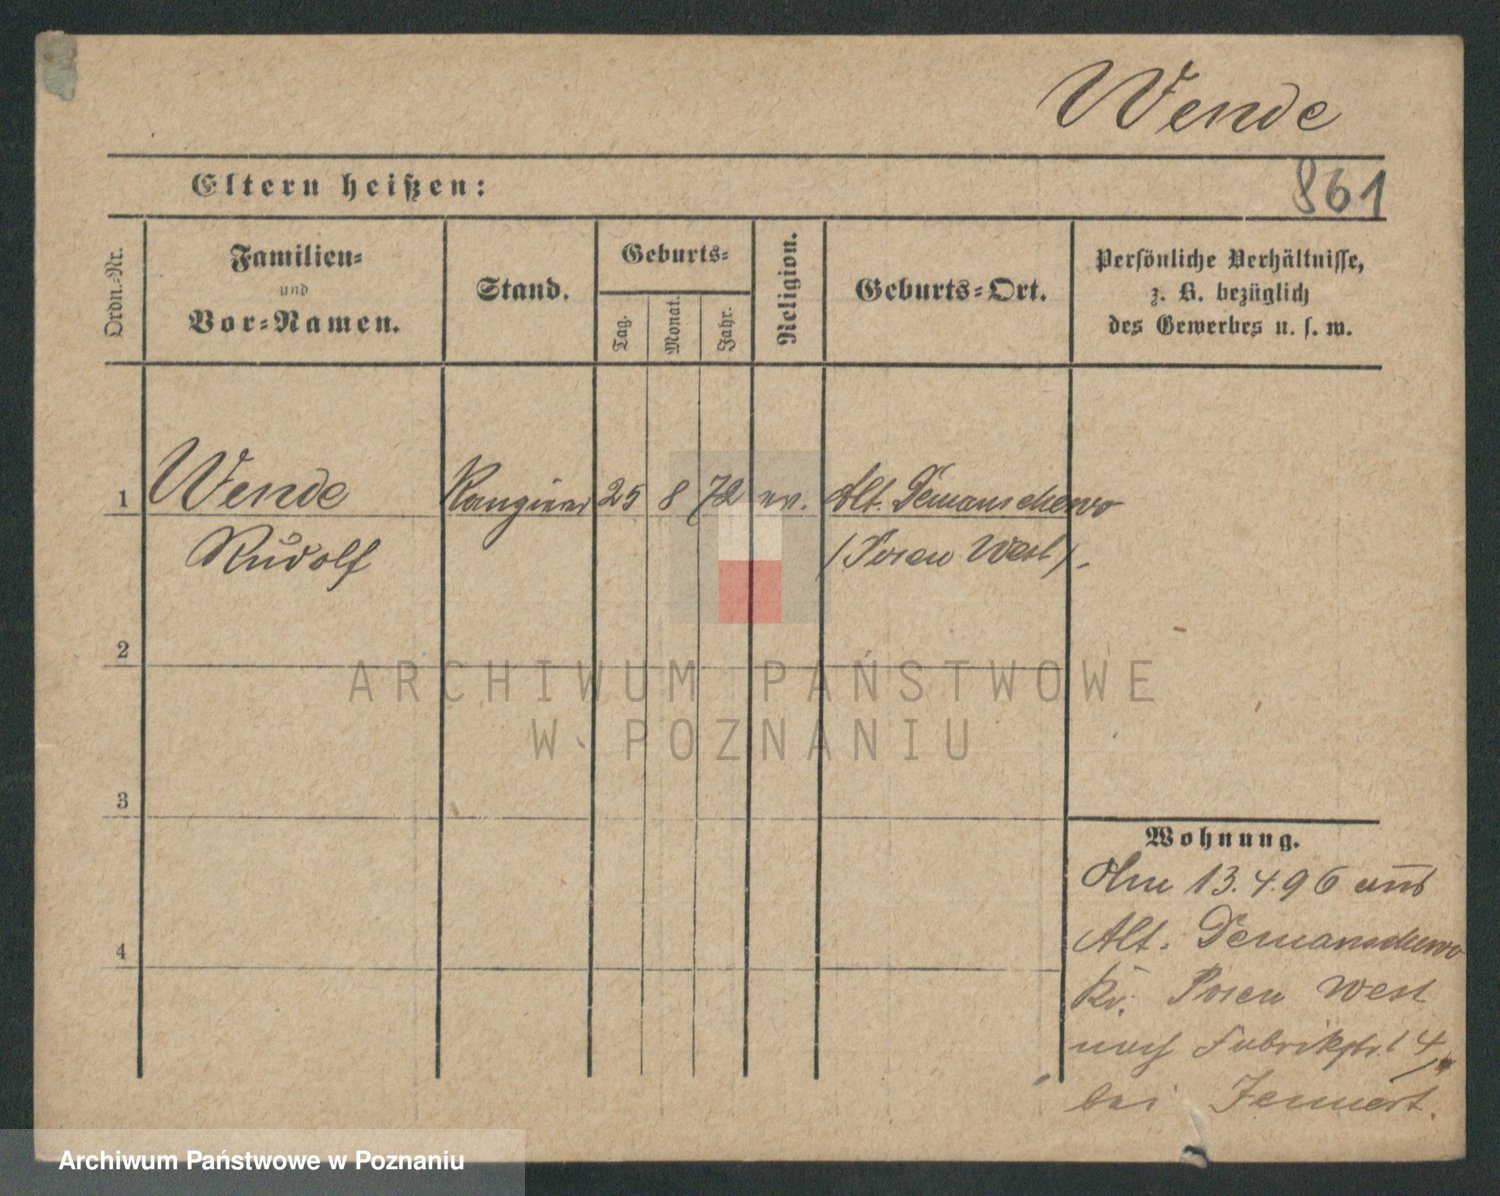 Wende
861
Eltern heißen:
Ordn.-Nr.
Familien-
und
Vor-Namen.
Stand.
Geburts-
Tag.
Monat.
Jahr.
Religion.
Geburts-Ort.
Persönliche Verhältnisse,
z. B. bezüglich
des Gewerbes u. s. w.
1 Wende Rangierer 25 8 72 ev. Alt. Demanschewo
Rudolf (Posen West).
2
3
4
Wohnung.
Am 13.4.96 aus
Alt. Demanschewo
Kr. Posen West
nach Fabrikstr. 14
bei
ARCHIWUM PAŃSTWOWE
W POZNANIU
Archiwum Państwowe w Poznaniu